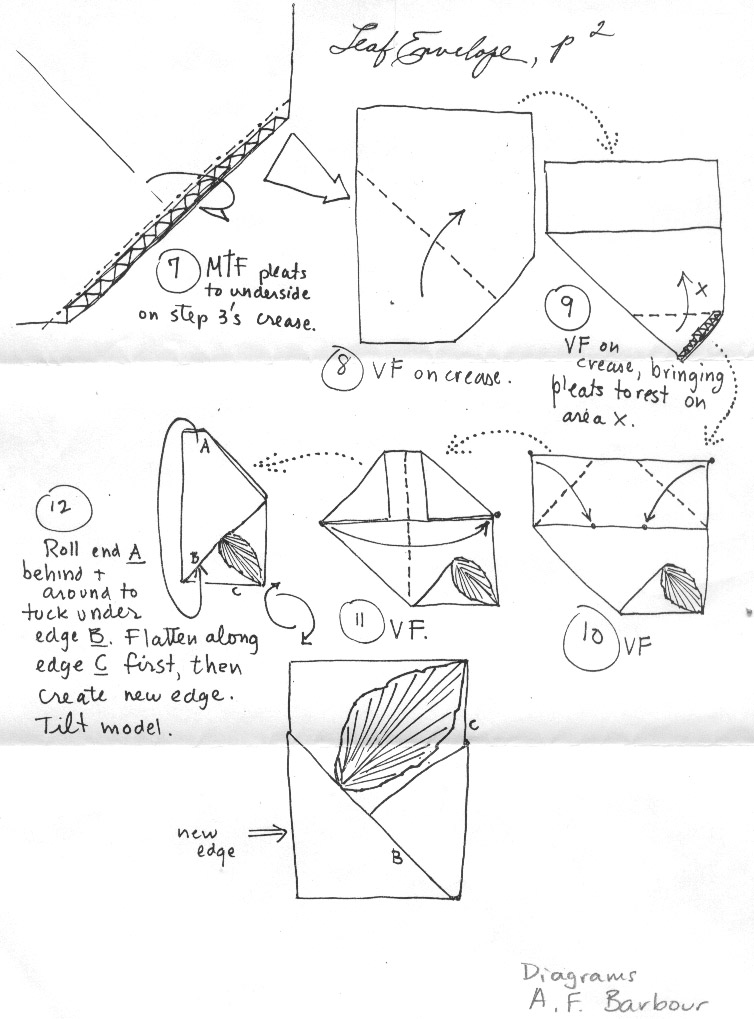 Leaf Envelope, p 2
7 MTF pleats
to underside
on step 3's crease.
8 VF on crease.
9
X
VF on
crease, bringing
pleats to rest on
area X.
10 VF
11 VF.
12
A
B
C
Roll end A
behind +
around to
tuck under
edge B. Flatten along
edge C first, then
create new edge.
Tilt model.
C
new
edge
B
Diagrams
A. F. Barbour